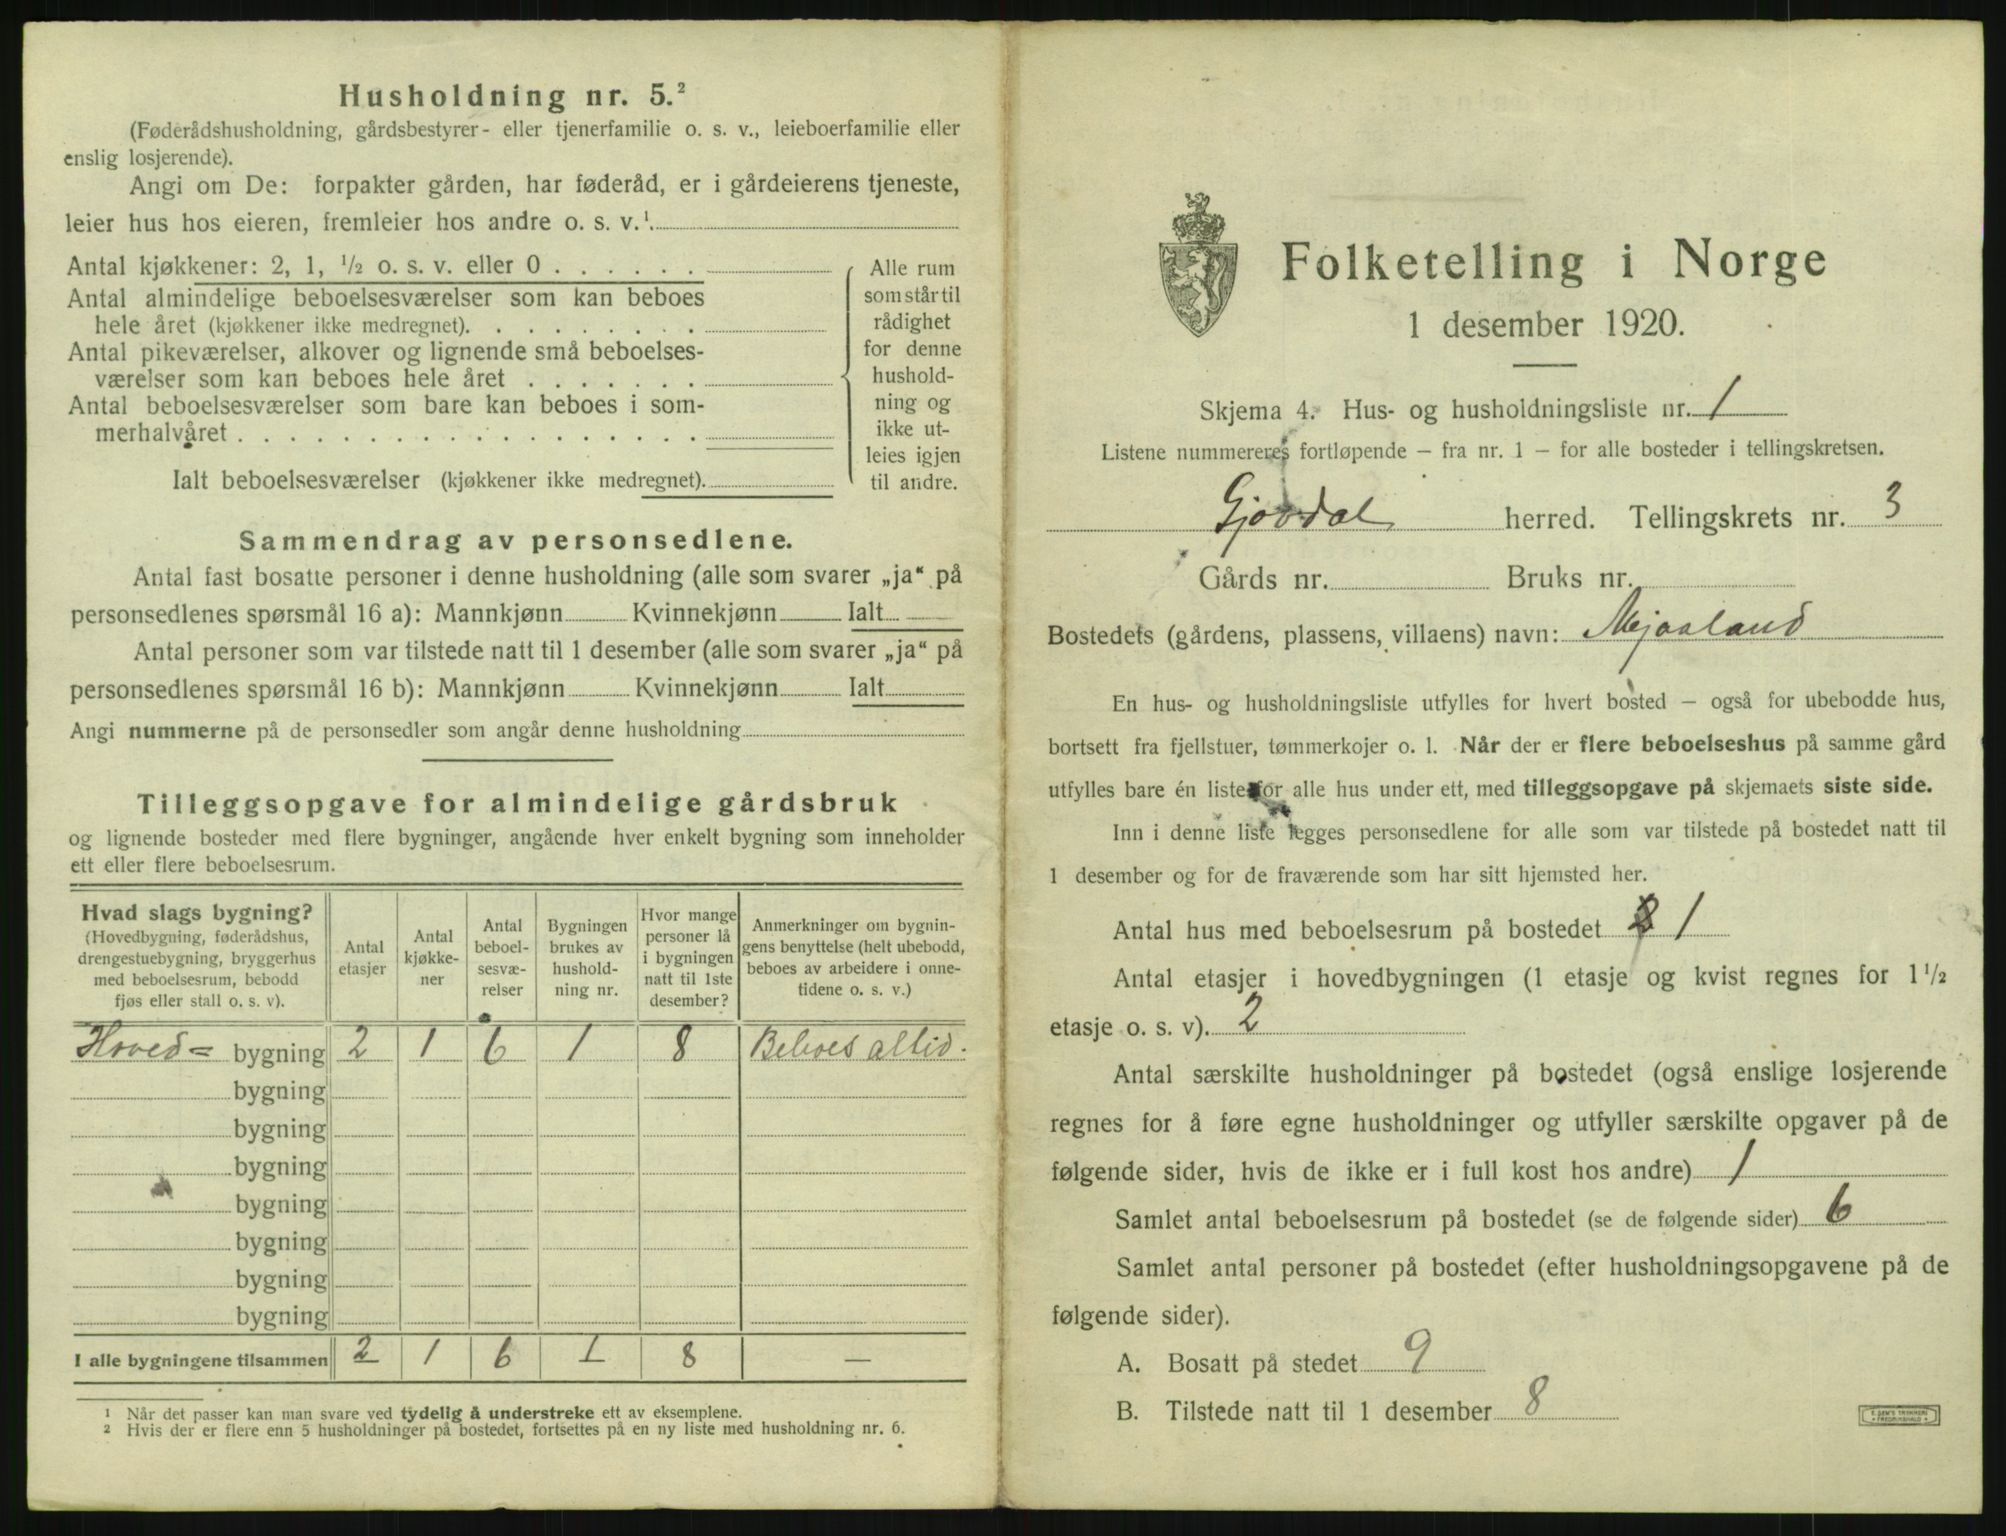 Husholdning nr. 5.²
(Føderådshusholdning, gårdsbestyrer- eller tjenerfamilie o. s. v., leieboerfamilie eller
enslig losjerende).
Angi om De: forpakter gården, har føderåd, er i gårdeierens tjeneste,
leier hus hos eieren, fremleier hos andre o. s. v.¹
Antal kjøkkener: 2, 1, ½ o. s. v. eller 0
Antal almindelige beboelsesværelser som kan beboes
hele året (kjøkkener ikke medregnet).
Antal pikeværelser, alkover og lignende små beboelses-
værelser som kan beboes hele året
Antal beboelsesværelser som bare kan beboes i som-
merhalvåret
Ialt beboelsesværelser (kjøkkener ikke medregnet).
Alle rum
som står til
rådighet
for denne
hushold-
ning og
ikke ut-
leies igjen
til andre.
Sammendrag av personsedlene.
Antal fast bosatte personer i denne husholdning (alle som svarer „ja“ på
personsedlenes spørsmål 16 a): Mannkjønn Kvinnekjønn Ialt
Antal personer som var tilstede natt til 1 desember (alle som svarer „ja“ på
personsedlenes spørsmål 16 b): Mannkjønn Kvinnekjønn Ialt
Angi nummerne på de personsedler som angår denne husholdning
Tilleggsopgave for almindelige gårdsbruk
og lignende bosteder med flere bygninger, angående hver enkelt bygning som inneholder
ett eller flere beboelsesrum.
Hvad slags bygning?
(Hovedbygning, føderådshus,
drengestuebygning, bryggerhus
med beboelsesrum, bebodd
fjøs eller stall o. s. v).
Antal
etasjer
Antal
kjøkke-
ner
Antal
beboel-
sesvæ-
relser
Bygningen
brukes av
hushold-
ning nr.
Hvor mange
personer lå
i bygningen
natt til 1ste
desember?
Anmerkninger om bygnin-
gens benyttelse (helt ubebodd,
beboes av arbeidere i onne-
tidene o. s. v.)
Hoved= bygning 2 1 6 1 8 Beboes altid.
bygning
bygning
bygning
bygning
bygning
bygning
bygning
I alle bygningene tilsammen 2 1 6 1 8 —
¹ Når det passer kan man svare ved tydelig å understreke ett av eksemplene.
² Hvis der er flere enn 5 husholdninger på bostedet, fortsettes på en ny liste med husholdning nr. 6.
Folketelling i Norge
1 desember 1920.
Skjema 4. Hus- og husholdningsliste nr. 1
Listene nummereres fortløpende – fra nr. 1 – for alle bosteder i tellingskretsen.
Gjøvdal herred. Tellingskrets nr. 3
Gårds nr. Bruks nr.
Bostedets (gårdens, plassens, villaens) navn: Mjaaland
En hus- og husholdningsliste utfylles for hvert bosted – også for ubebodde hus,
bortsett fra fjellstuer, tømmerkojer o. l. Når der er flere beboelseshus på samme gård
utfylles bare én liste for alle hus under ett, med tilleggsopgave på skjemaets siste side.
Inn i denne liste legges personsedlene for alle som var tilstede på bostedet natt til
1 desember og for de fraværende som har sitt hjemsted her.
Antal hus med beboelsesrum på bostedet 1
Antal etasjer i hovedbygningen (1 etasje og kvist regnes for 1½
etasje o. s. v). 2
Antal særskilte husholdninger på bostedet (også enslige losjerende
regnes for å føre egne husholdninger og utfyller særskilte opgaver på de
følgende sider, hvis de ikke er i full kost hos andre) 1
Samlet antal beboelsesrum på bostedet (se de følgende sider) 6
Samlet antal personer på bostedet (efter husholdningsopgavene på de
følgende sider).
A. Bosatt på stedet 9
B. Tilstede natt til 1 desember 8